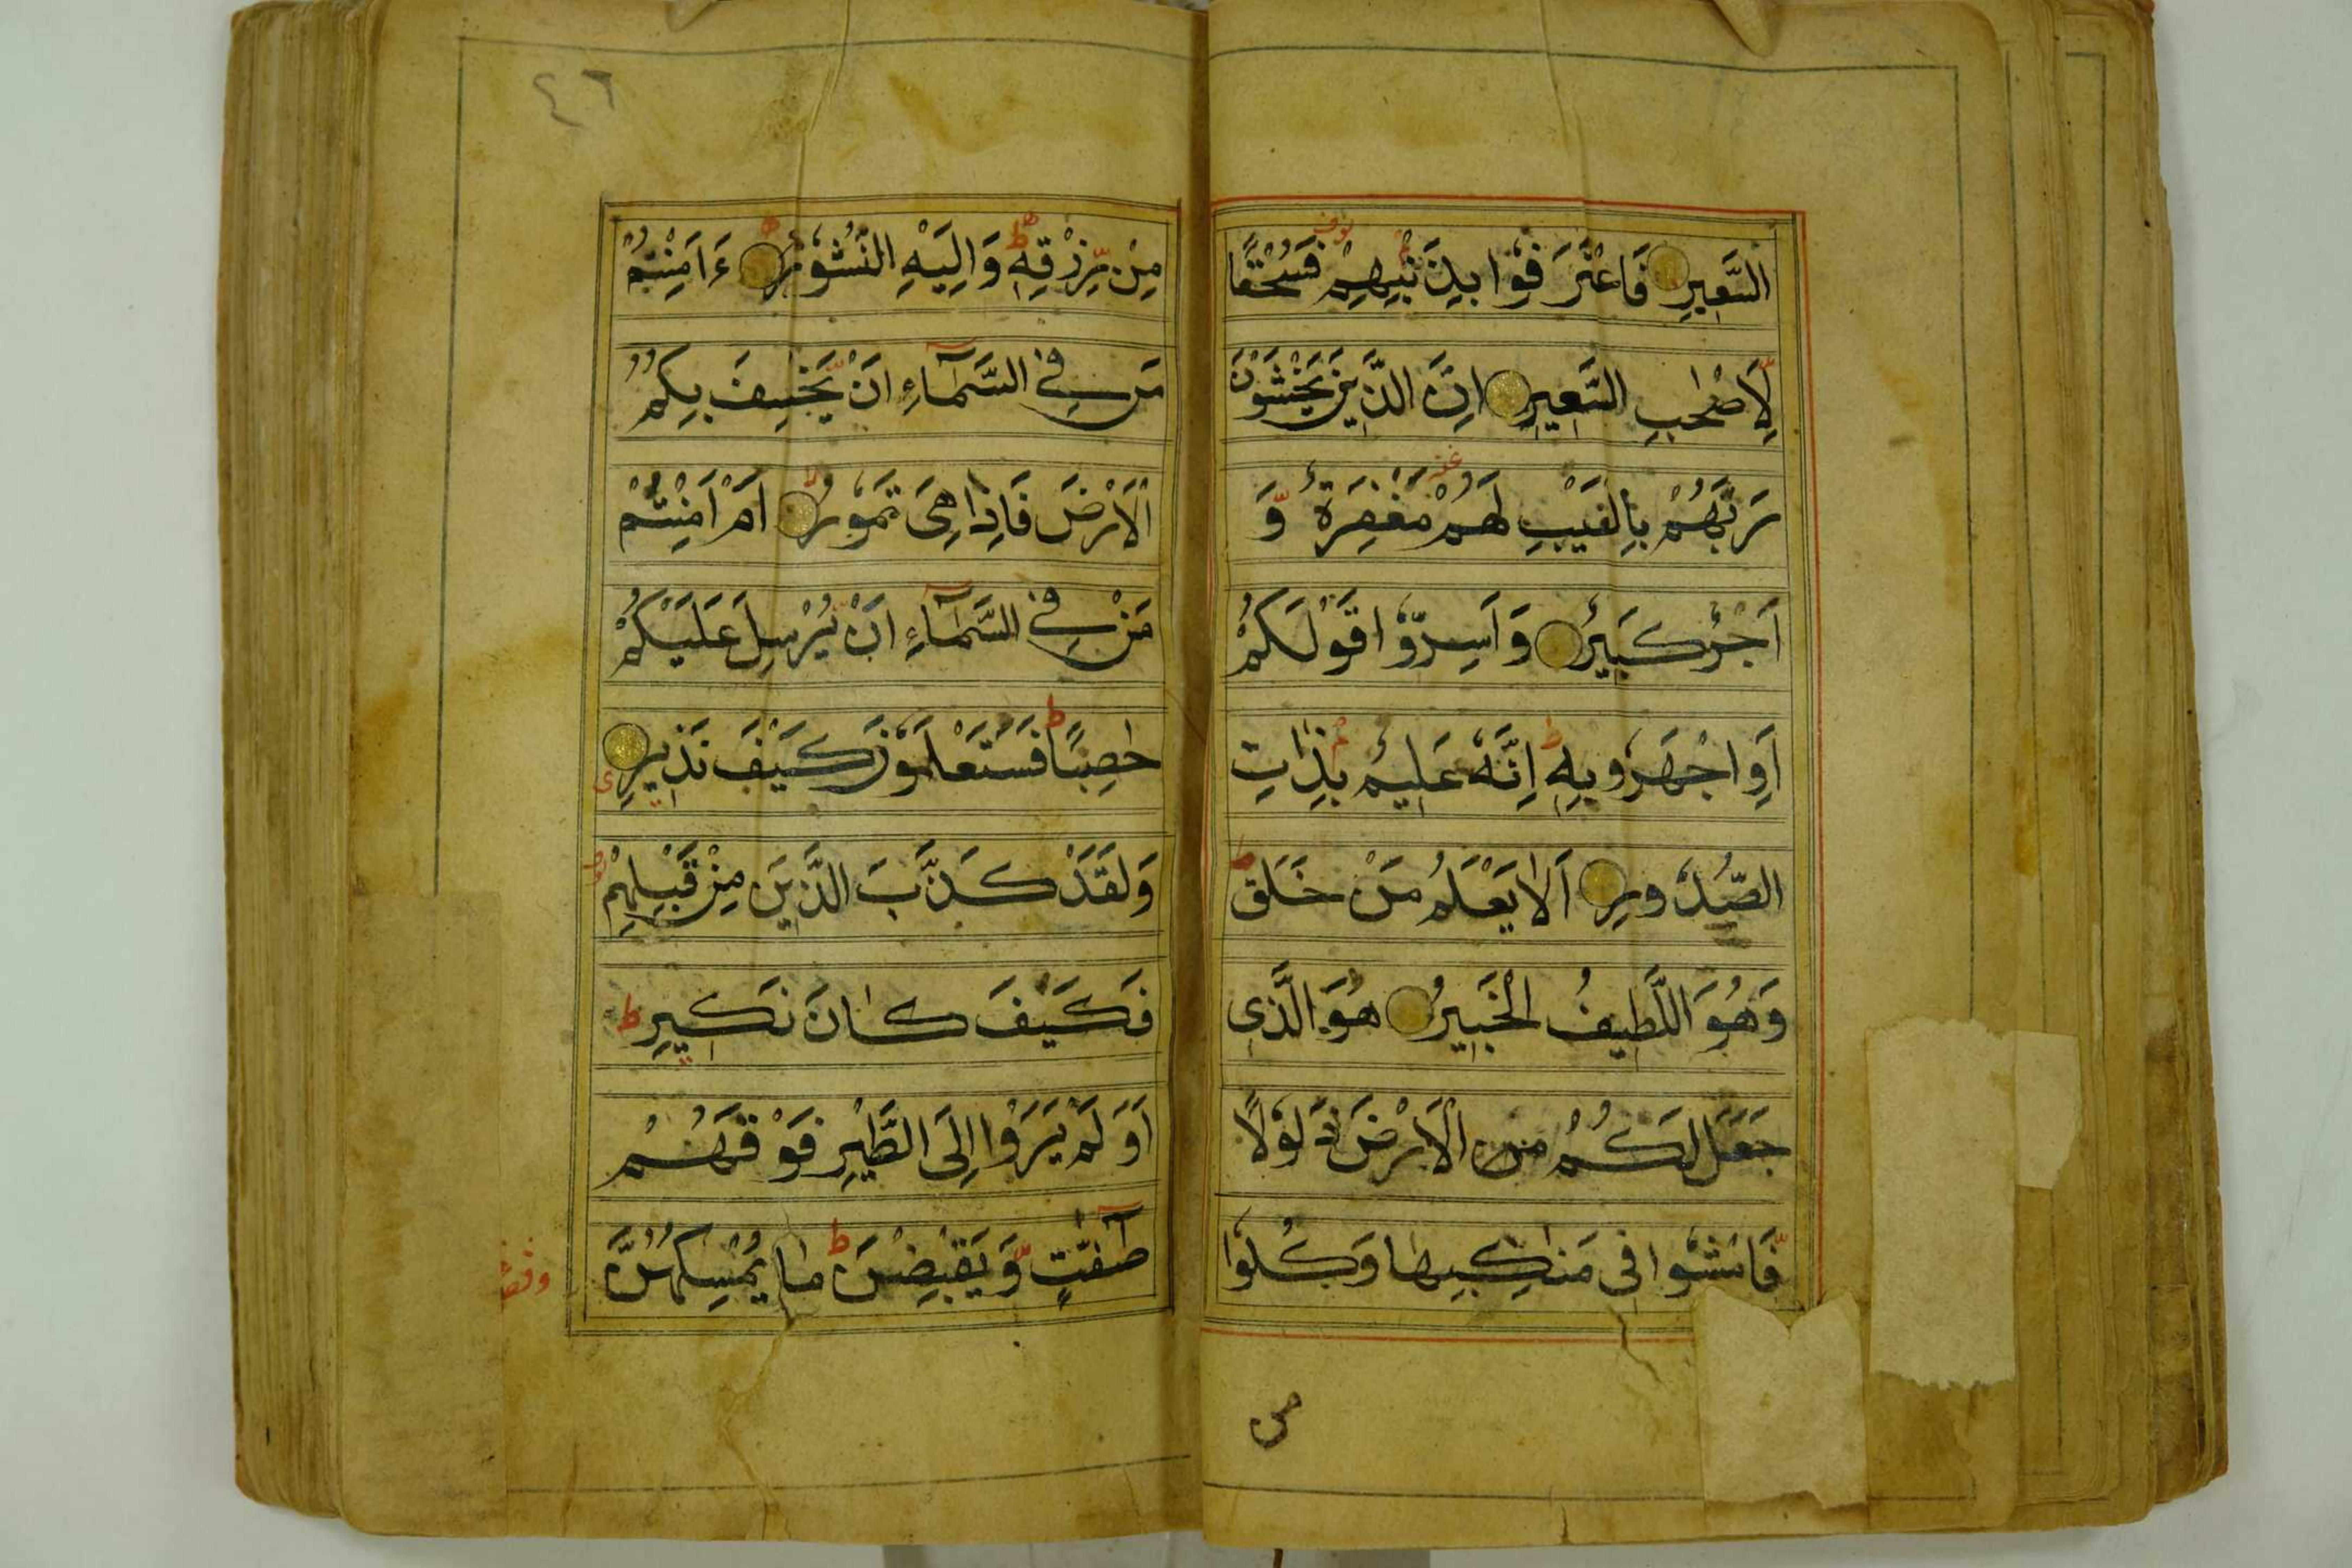 السَّعِيرِ فَاعْتَرَفُوا بِذَنْبِهِمْ فَسُحْقًا
لِّاَصْحٰبِ السَّعِيرِ اِنَّ الَّذِينَ يَخْشَوْنَ
رَبَّهُمْ بِالْغَيْبِ لَهُمْ مَغْفِرَةٌ وَّ
اَجْرٌ كَبِيرٌ وَاَسِرُّوْا قَوْلَكُمْ
اَوِاجْهَرُو بِهٖ اِنَّهٗ عَلِيمٌ بِذَاتِ
الصُّدُورِ اَلَا يَعْلَمُ مَنْ خَلَقَ
وَهُوَ اللَّطِيفُ الْخَبِيرُ هُوَ الَّذِى
جَعَلَ لَكُمُ من الْاَرْضَ ذَلُوْلًا
فَامْشُوا فِى مَنَاكِبِهَا وَكُلُوا
من
٤٦
مِنْ رِّزْقِهٖ وَاِلَيْهِ النُّشُوْرُ ءَاَمِنْتُمْ
مَن فِي السَّمَآءِ اَنْ يَّخْسِفَ بِكُمُ
الْاَرْضَ فَاِذَا هِىَ تَمُوْرُ اَمْ اَمِنْتُمْ
مَنْ فِي السَّمَآءِ اَنْ يُّرْسِلَ عَلَيْكُمْ
حٰصِبًا ط فَسَتَعْلَمُوْنَ كَيْفَ نَذِيرِ
وَلَقَدْ كَذَّبَ الَّذِينَ مِنْ قَبْلِهِمْ
فَكَيْفَ كَانَ نَكِيرِ ط
اَوَلَمْ يَرَوْا اِلَى الطَّيْرِ فَوْقَهُمْ
صٰٓفّٰتٍ وَّيَقْبِضْنَ ط مَا يُمْسِكُهُنَّ